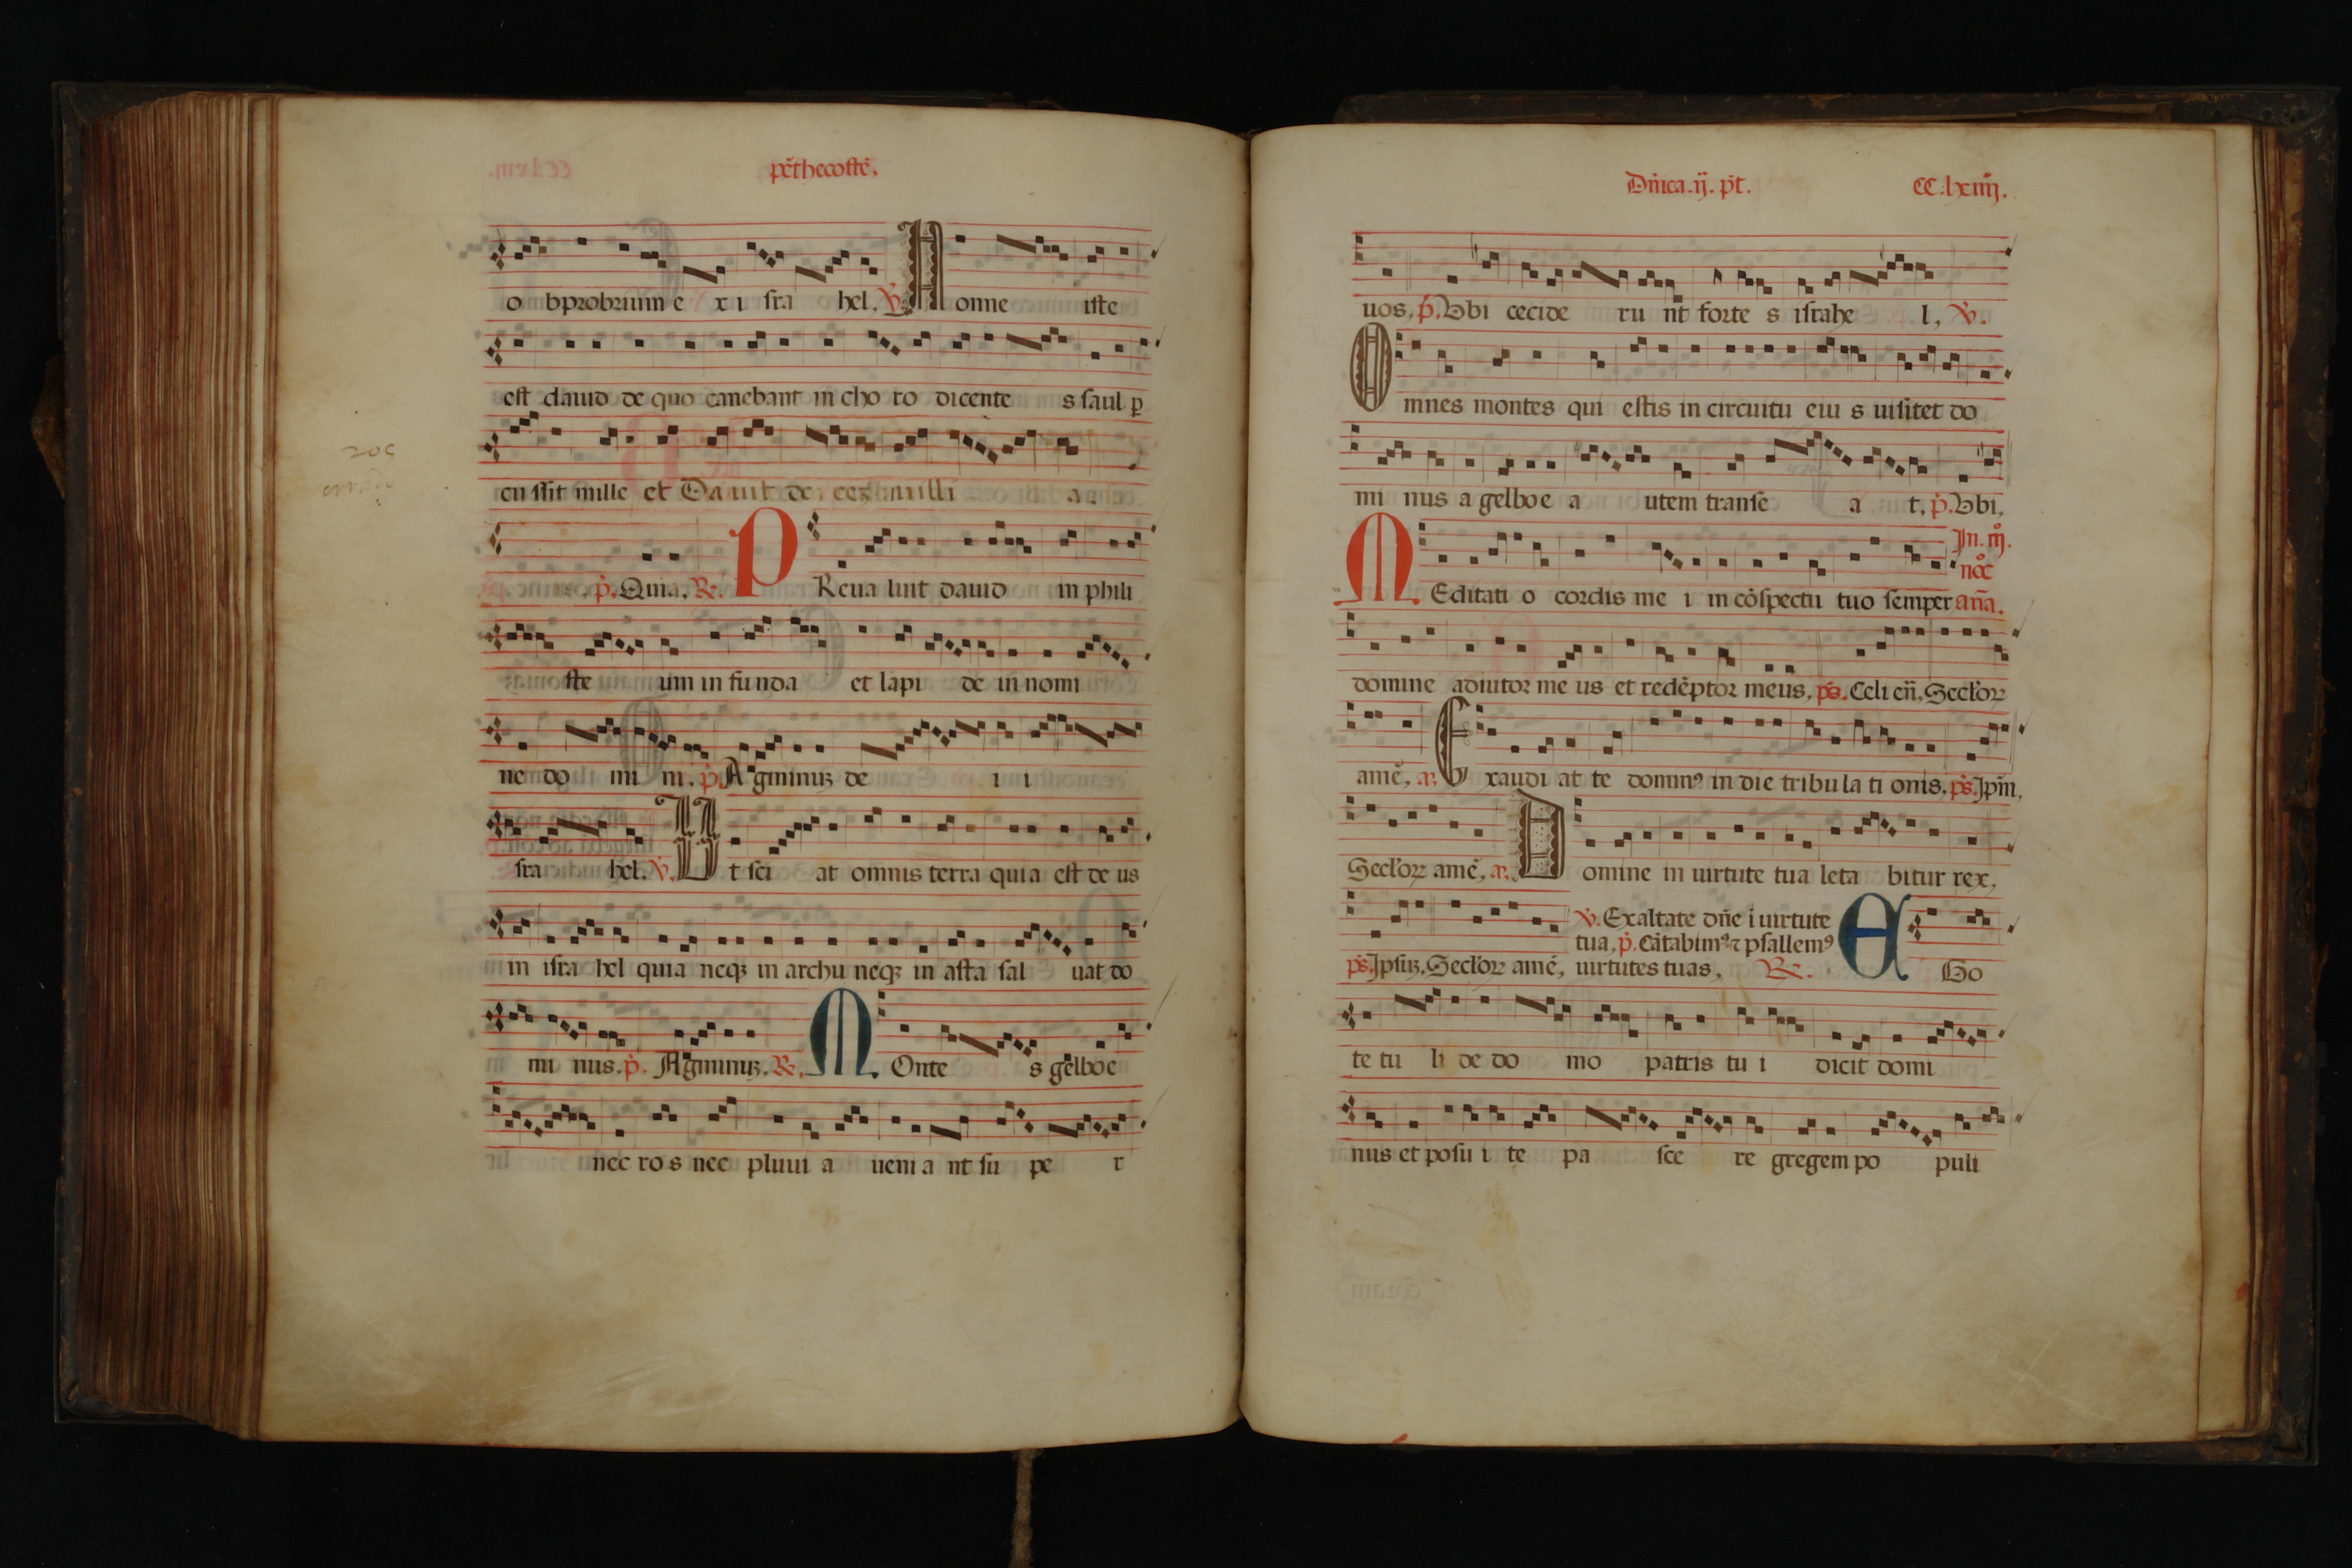 pēthecostē.
o bprobrium e x i sra hel. ℣. Nonne iste
est dauid de quo canebant in cho ro dicente s saul p̱
cu ssit mille et Dauit de cez milli a.
p̄. Quia. ℟. PReua luit dauid in phili
ste um in funda et lapi de in nomi
ne do mi ni. p̄. A gminuꝫ de i i
sra hel. ℣. Ut sci at omnis terra quia est de us
in isra hel quia neqꝫ in archu neqꝫ in asta sal uat do
mi nus. p̄. Agminuꝫ. ℟. MOnte s gelboe
nec ro s nec pluui a ueni a nt su pe r
Dn̄ica .ij. p̄t. CC.lxiiij.
uos. p̄. Vbi cecide ru nt forte s israhe l. ℣.
Omnes montes qui estis in circuitu eiu s uisitet do
mi nus a gelboe a utem transe a t. p̄. Vbi.
In. iijº.
noc̄
MEditati o cordis me i in cōspectu tuo semper an̄a.
domine adiutor me us et redēptor meus. p̄s. Celi en̄. Secl'oꝝ
amē. a. Exaudi at te dominꝰ in die tribu la ti onis. p̄s. Ip̄m.
Secl'oꝝ amē. a. Domine in uirtute tua leta bitur rex.
℣. Exaltate dn̄e i uirtute
tua. p̄. Cātabimꝰ ⁊ psallemꝰ
p̄s. Ipsuꝫ. Secl'oꝝ amē. uirtutes tuas. ℟. EGo
te tu li de do mo patris tu i dicit domi
nus et posu i te pa sce re gregem po puli